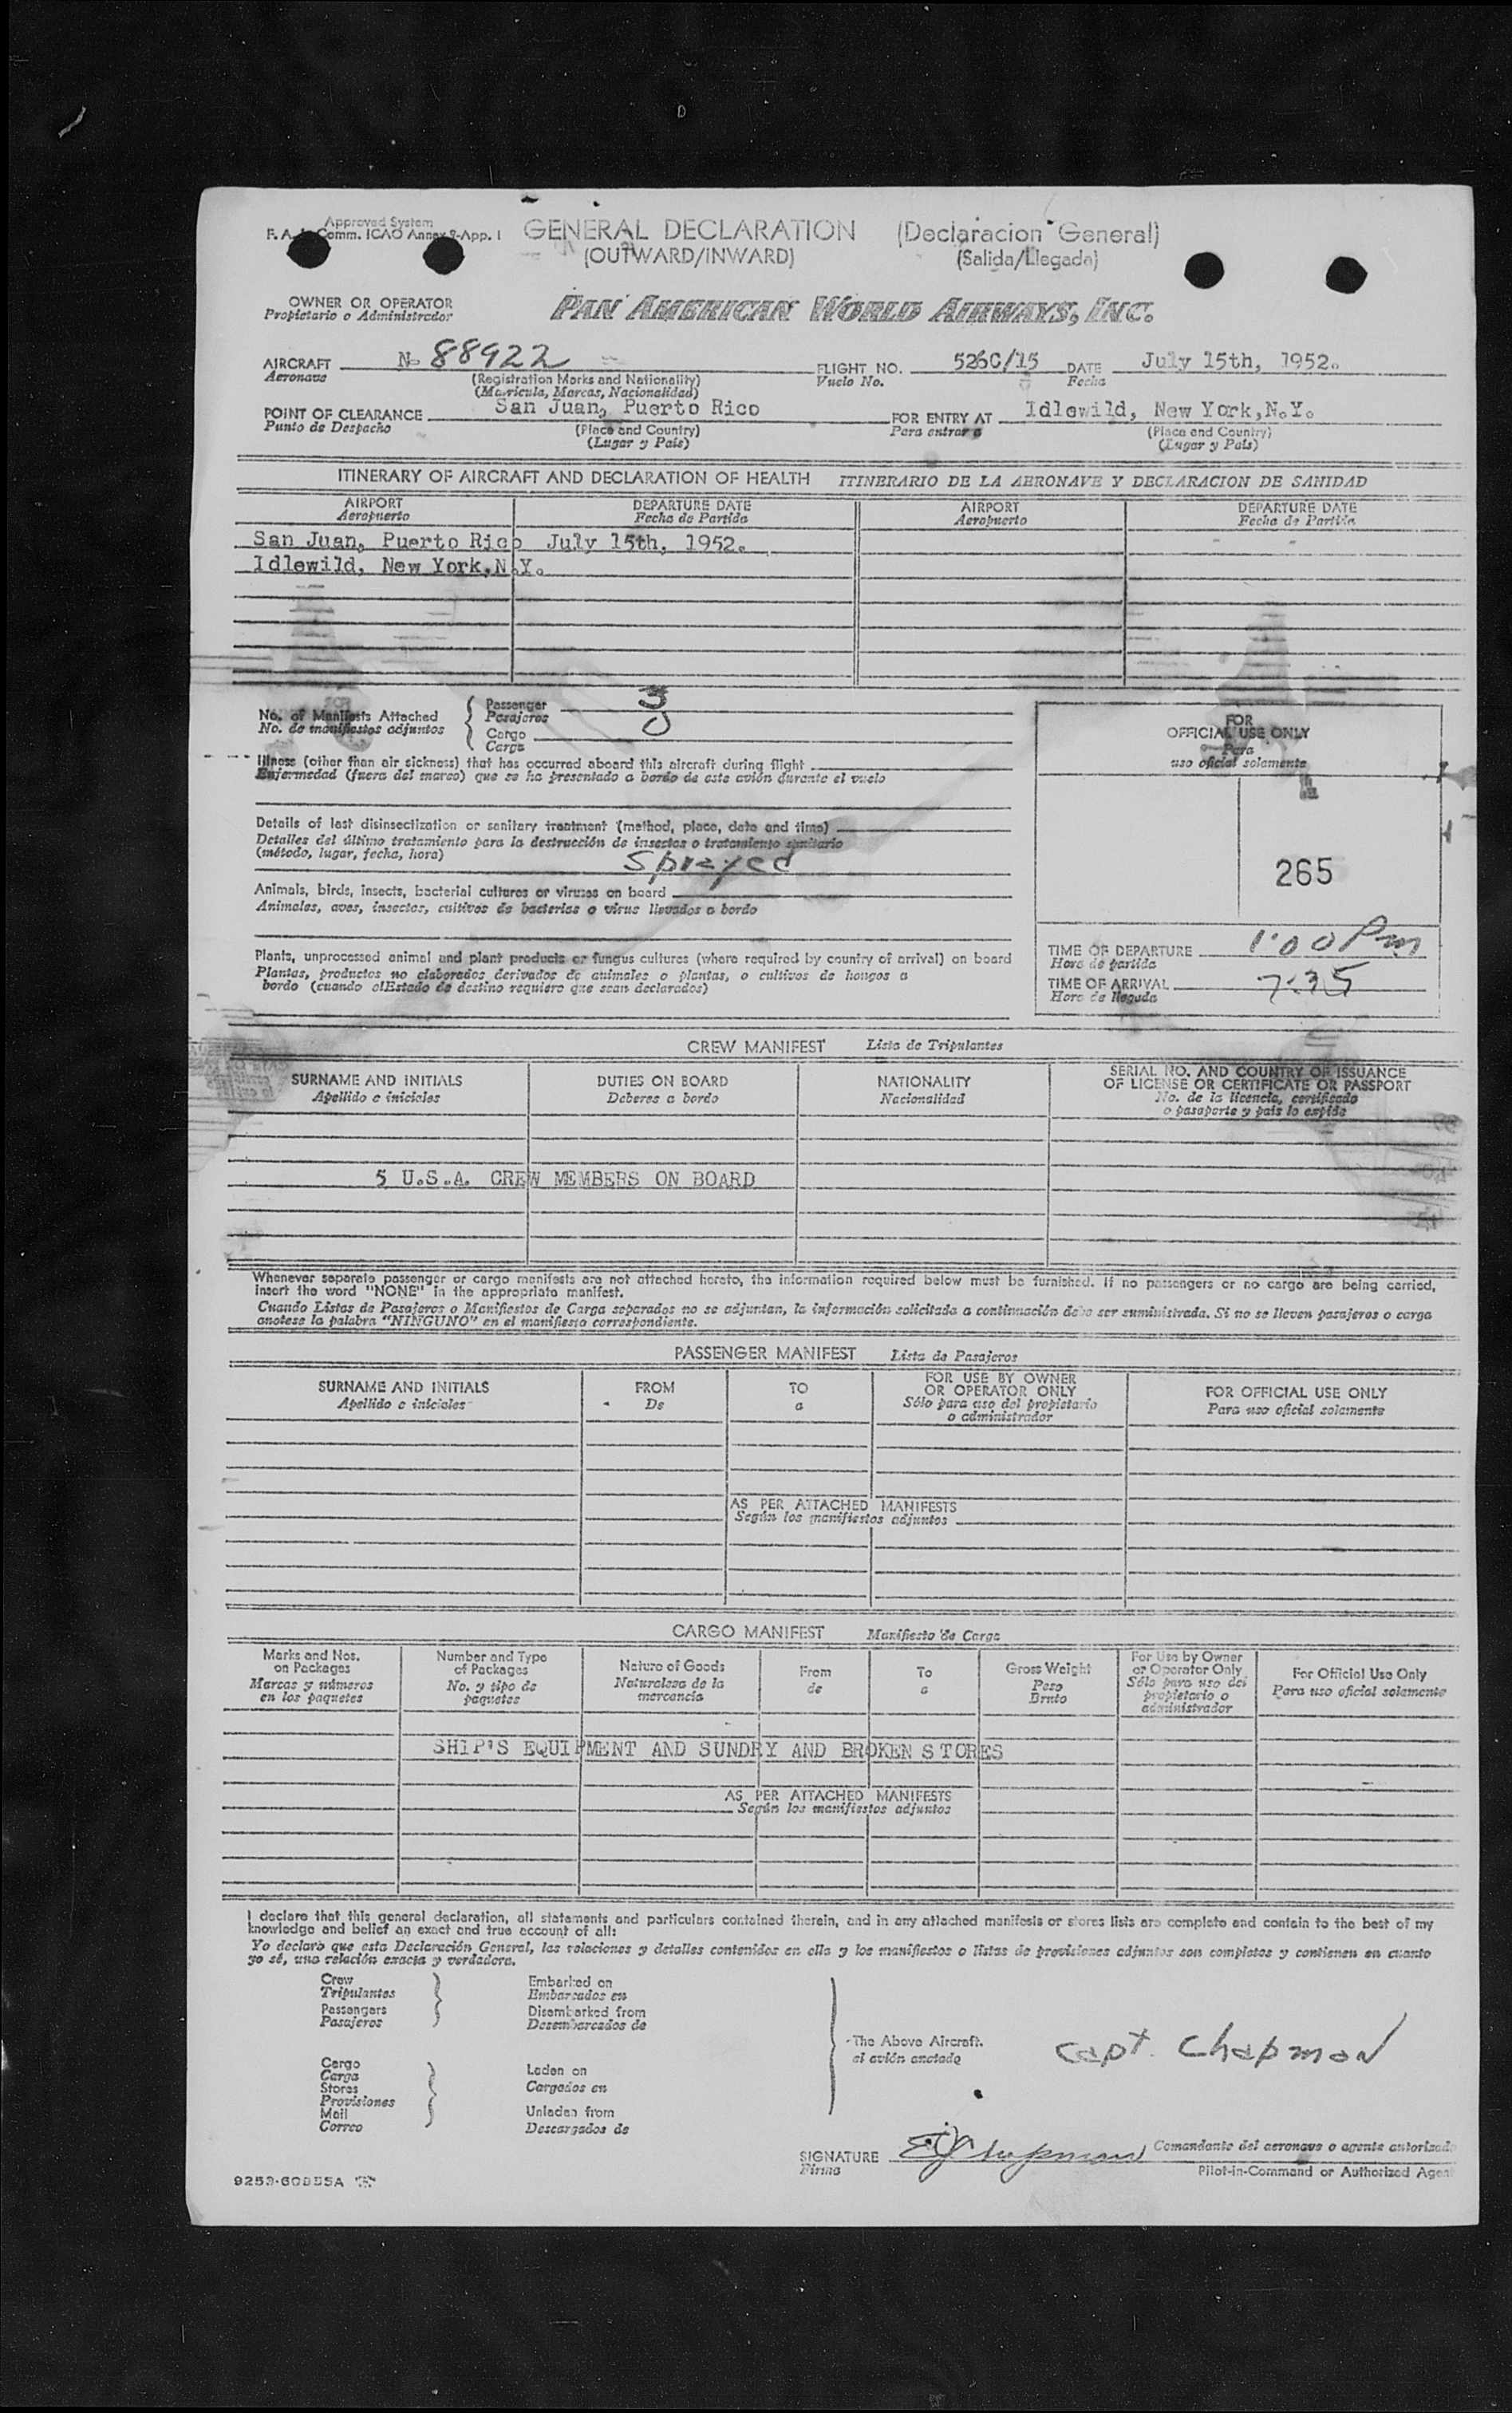 Approved System
F. A. L. Comm. ICAO Annex 9-App. I
GENERAL DECLARATION (Declaracion General)
(OUTWARD/INWARD) (Salida/Llegada)
OWNER OR OPERATOR
Propietario o Administrador
PAN AMERICAN WORLD AIRWAYS, INC.
AIRCRAFT N- 88922 FLIGHT NO. 526C/15 DATE July 15th, 1952.
Aeronave (Registration Marks and Nationality) Vuelo No. Fecha
(Matricula, Marcas, Nacionalidad)
POINT OF CLEARANCE San Juan, Puerto Rico FOR ENTRY AT Idlewild, New York,N.Y.
Punto de Despacho (Place and Country) Para entrar a (Place and Country)
(Lugar y País) (Lugar y País)
ITINERARY OF AIRCRAFT AND DECLARATION OF HEALTH ITINERARIO DE LA AERONAVE Y DECLARACION DE SANIDAD
AIRPORT DEPARTURE DATE AIRPORT DEPARTURE DATE
Aeropuerto Fecha de Partida Aeropuerto Fecha de Partida
San Juan, Puerto Rico July 15th, 1952.
Idlewild, New York,N.Y.
No. of Manifests Attached Passenger 3
No. de manifiestos adjuntos Pasajeros
Cargo
Carga
FOR
OFFICIAL USE ONLY
Para
uso oficial solamente
Illness (other than air sickness) that has occurred aboard this aircraft during flight
Enfermedad (fuera del mareo) que se ha presentado a bordo de este avión durante el vuelo
Details of last disinsectization or sanitary treatment (method, place, date and time)
Detalles del último tratamiento para la destrucción de insectos o tratamiento sanitario
(método, lugar, fecha, hora) Sprayed
265
Animals, birds, insects, bacterial cultures or viruses on board
Animales, aves, insectos, cultivos de bacterias o virus llevados a bordo
Plants, unprocessed animal and plant products or fungus cultures (where required by country of arrival) on board
Plantas, productos no elaborados derivados de animales o plantas, o cultivos de hongos a
bordo (cuando elEstado de destino requiere que sean declarados)
TIME OF DEPARTURE 1:00 Pm
Hora de partida
TIME OF ARRIVAL 7:35
Hora de llegada
CREW MANIFEST Lista de Tripulantes
SURNAME AND INITIALS DUTIES ON BOARD NATIONALITY SERIAL NO. AND COUNTRY OF ISSUANCE
OF LICENSE OR CERTIFICATE OR PASSPORT
Apellido e iniciales Deberes a bordo Nacionalidad No. de la licencia, certificado
o pasaporte y país lo expide
5 U.S.A. CREW MEMBERS ON BOARD
Whenever separate passenger or cargo manifests are not attached hereto, the information required below must be furnished. If no passengers or no cargo are being carried,
insert the word "NONE" in the appropriate manifest.
Cuando Listas de Pasajeros o Manifiestos de Carga separados no se adjuntan, la información solicitada a continuación debe ser suministrada. Si no se lleven pasajeros o carga
anotese la palabra "NINGUNO" en el manifiesto correspondiente.
PASSENGER MANIFEST Lista de Pasajeros
SURNAME AND INITIALS FROM TO FOR USE BY OWNER
OR OPERATOR ONLY FOR OFFICIAL USE ONLY
Apellido e iniciales De a Sólo para uso del propietario
o administrador Para uso oficial solamente
AS PER ATTACHED MANIFESTS
Según los manifiestos adjuntos
CARGO MANIFEST Manifiesto de Carga
Marks and Nos.
on Packages
Marcas y números
en los paquetes
Number and Type
of Packages
No. y tipo de
paquetes
Nature of Goods
Naturaleza de la
mercancia
From
de
To
a
Gross Weight
Peso
Bruto
For Use by Owner
or Operator Only
Sólo para uso del
propietario o
administrador
For Official Use Only
Para uso oficial solamente
SHIP'S EQUIPMENT AND SUNDRY AND BROKEN STORES
AS PER ATTACHED MANIFESTS
Según los manifiestos adjuntos
I declare that this general declaration, all statements and particulars contained therein, and in any attached manifests or stores lists are complete and contain to the best of my
knowledge and belief an exact and true account of all:
Yo declaro que esta Declaración General, las relaciones y detalles contenidos en ella y los manifiestos o listas de provisiones adjuntas son completos y contienen en cuanto
yo sé, una relación exacta y verdadera.
Crew
Tripulantes
Passengers
Pasajeros
Embarked on
Embarcados en
Disembarked from
Desembarcados de
The Above Aircraft.
el avión anotado
Capt. Chapman
Cargo
Carga
Stores
Provisiones
Mail
Correo
Laden on
Cargados en
Unladen from
Descargados de
SIGNATURE E J Chapman Comandante del aeronave o agente autorizado
Firma Pilot-in-Command or Authorized Agent